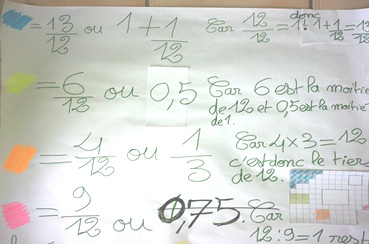 = 13/12 ou 1 + 1/12 Car 12/12 = 1 ! donc 1 + 1/12 = 13/12
= 6/12 ou 0,5 Car 6 est la moitié
de 12 et 0,5 est la moitié
de 1.
= 4/12 ou 1/3 Car 4 x 3 = 12
c'est donc le tiers
de 12.
= 9/12 ou 0,75. Car
12 : 9 = 1 rest